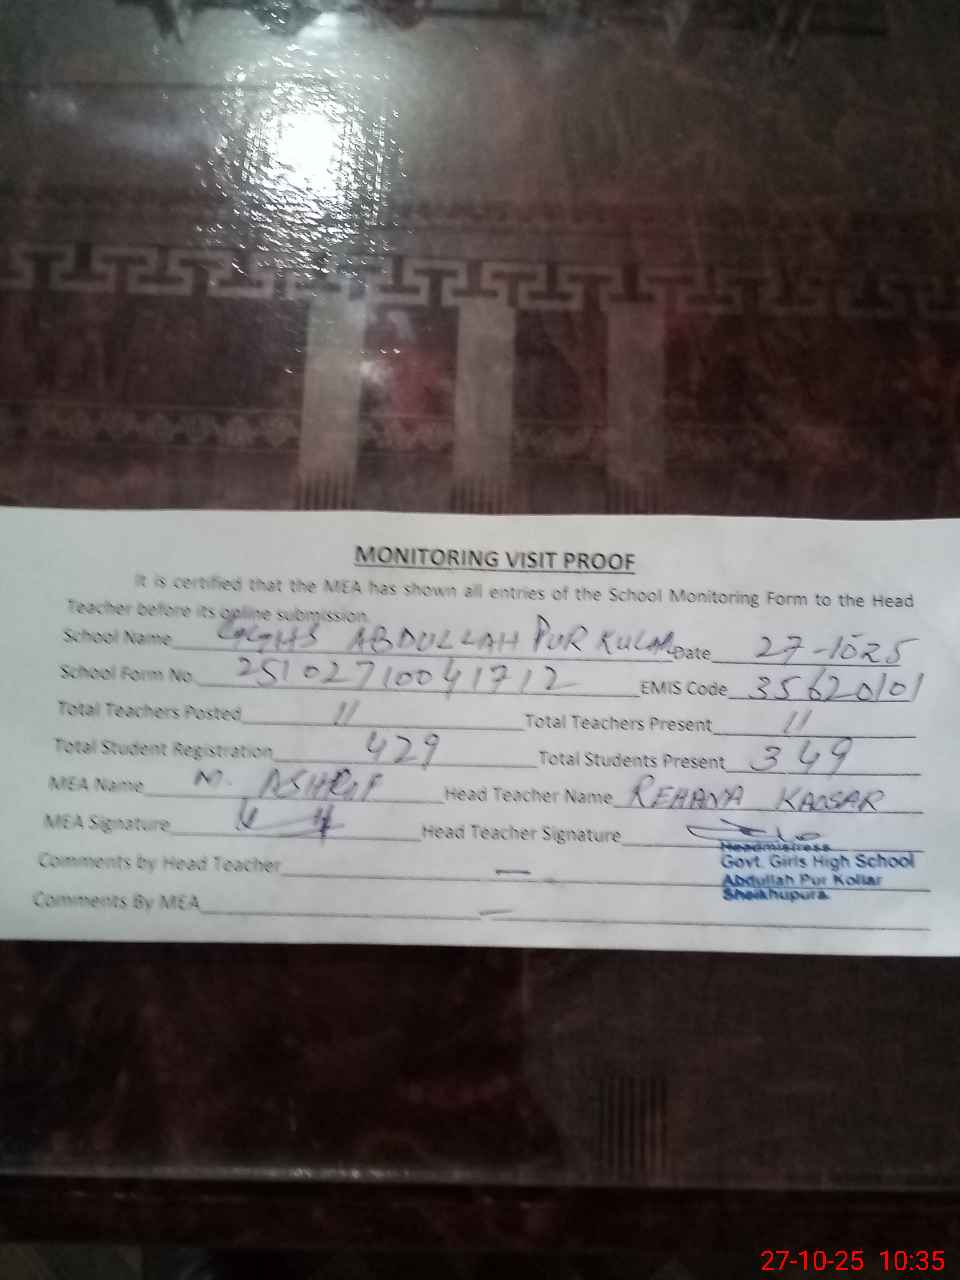 MONITORING VISIT PROOF
It is certified that the MEA has shown all entries of the School Monitoring Form to the Head
Teacher before its online submission.
School Name GGHS ABDULLAH PUR KULAR Date 27-10-25
School Form No. 25102710041712 EMIS Code 35620101
Total Teachers Posted 11 Total Teachers Present 11
Total Student Registration 429 Total Students Present 349
MEA Name M. ASHRAF Head Teacher Name REHANA KAOSAR
MEA Signature Head Teacher Signature
Headmistress
Comments by Head Teacher — Govt. Girls High School
Abdullah Pur Kollar
Comments By MEA — Sheikhupura
27-10-25 10:35